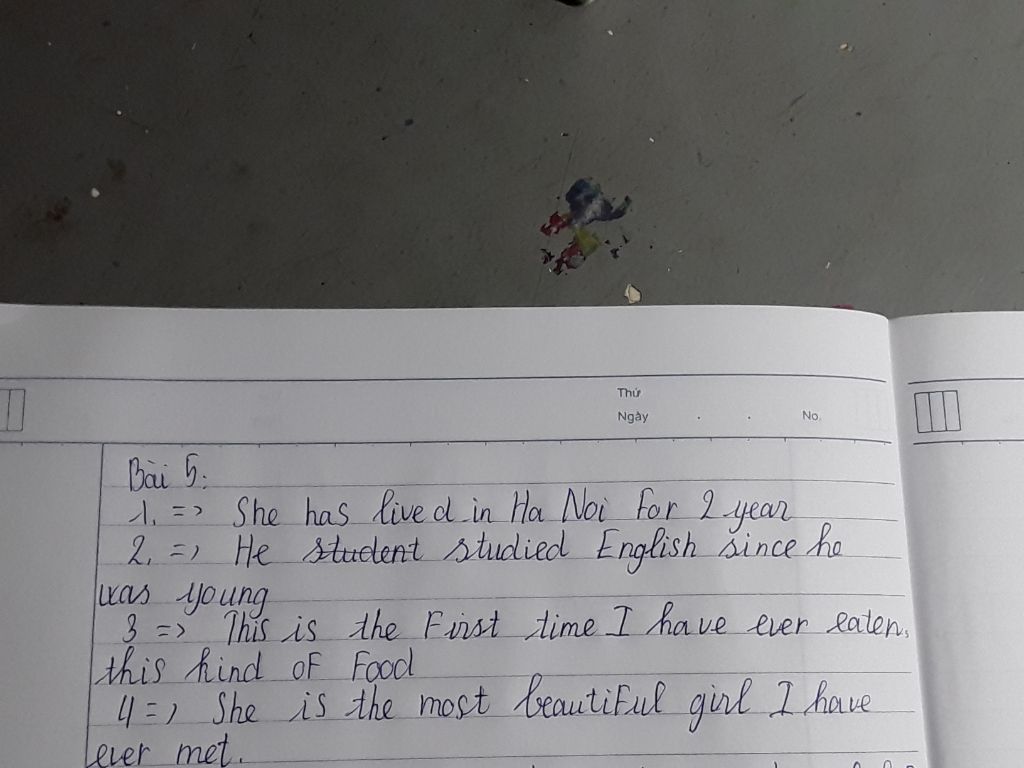 Thứ
Ngày . . No.
Bài 5:
1. => She has lived in Ha Noi for 2 year
2. => He student studied English since he
was young
3 => This is the First time I have ever eaten,
this kind of Food
4 => She is the most beautiful girl I have
ever met.